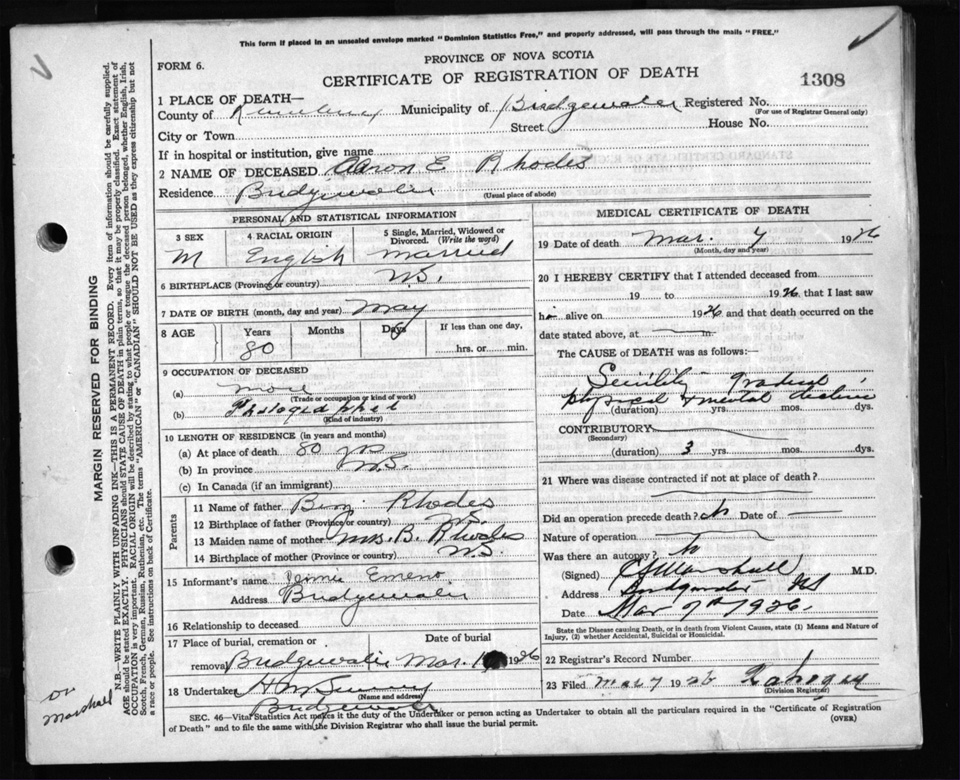 This form if placed in an unsealed envelope marked "Dominion Statistics Free," and properly addressed, will pass through the mails "FREE."
FORM 6.
PROVINCE OF NOVA SCOTIA
CERTIFICATE OF REGISTRATION OF DEATH
1308
1 PLACE OF DEATH—
County of Municipality of Bridgewater Registered No.
(For use of Registrar General only)
City or Town Street House No.
If in hospital or institution, give name
2 NAME OF DECEASED Aaron E Rhodes
Residence Bridgewater (Usual place of abode)
PERSONAL AND STATISTICAL INFORMATION
3 SEX 4 RACIAL ORIGIN 5 Single, Married, Widowed or Divorced. (Write the word)
M English Married
6 BIRTHPLACE (Province or country) N.S.
7 DATE OF BIRTH (month, day and year) May
8 AGE Years Months Days If less than one day,
80 hrs. or min.
9 OCCUPATION OF DECEASED
(a)
(Trade or occupation or kind of work)
(b)
(Kind of industry)
10 LENGTH OF RESIDENCE (in years and months)
(a) At place of death 80 yrs
(b) In province N.S.
(c) In Canada (if an immigrant)
Parents
11 Name of father Benj Rhodes
12 Birthplace of father (Province or country) N.S.
13 Maiden name of mother Mrs. B. Rhodes
14 Birthplace of mother (Province or country) N.S.
15 Informant's name Jennie
Address Bridgewater
16 Relationship to deceased
17 Place of burial, cremation or Date of burial
removal Bridgewater Mar. 1926
18 Undertaker
(Name and address)
Bridgewater
MEDICAL CERTIFICATE OF DEATH
19 Date of death Mar. 7 1926
(Month, day and year)
20 I HEREBY CERTIFY that I attended deceased from
19 to 1926 that I last saw
h alive on 1926 and that death occurred on the
date stated above, at m.
The CAUSE of DEATH was as follows:—
Senility gradual
physical & mental decline
(duration) yrs. mos. dys.
CONTRIBUTORY
(Secondary)
(duration) 3 yrs. mos. dys.
21 Where was disease contracted if not at place of death?
Did an operation precede death? No Date of
Nature of operation
Was there an autopsy? No
(Signed) Marshall M.D.
Address Bridgewater NS
Date Mar 7th 1926.
State the Disease causing Death, or in death from Violent Causes, state (1) Means and Nature of Injury, (2) whether Accidental, Suicidal or Homicidal.
22 Registrar's Record Number
23 Filed Mar 7 1926
(Division Registrar)
SEC. 46—Vital Statistics Act makes it the duty of the Undertaker or person acting as Undertaker to obtain all the particulars required in the "Certificate of Registration
of Death" and to file the same with the Division Registrar who shall issue the burial permit. (OVER)
MARGIN RESERVED FOR BINDING
N.B.—WRITE PLAINLY WITH UNFADING INK—THIS IS A PERMANENT RECORD. Every item of information should be carefully supplied.
AGE should be stated EXACTLY. PHYSICIANS should STATE CAUSE OF DEATH in plain terms, so that it may be properly classified. Exact statement of
OCCUPATION is very important. RACIAL ORIGIN will be described by stating to what people or tongue the deceased person belonged, whether English, Irish,
Scotch, French, German, Russian, Ruthenian, etc. The terms "AMERICAN" or "CANADIAN" SHOULD NOT BE USED as they express citizenship but not
a race or people. See instructions on back of Certificate.
Dr
Marshall